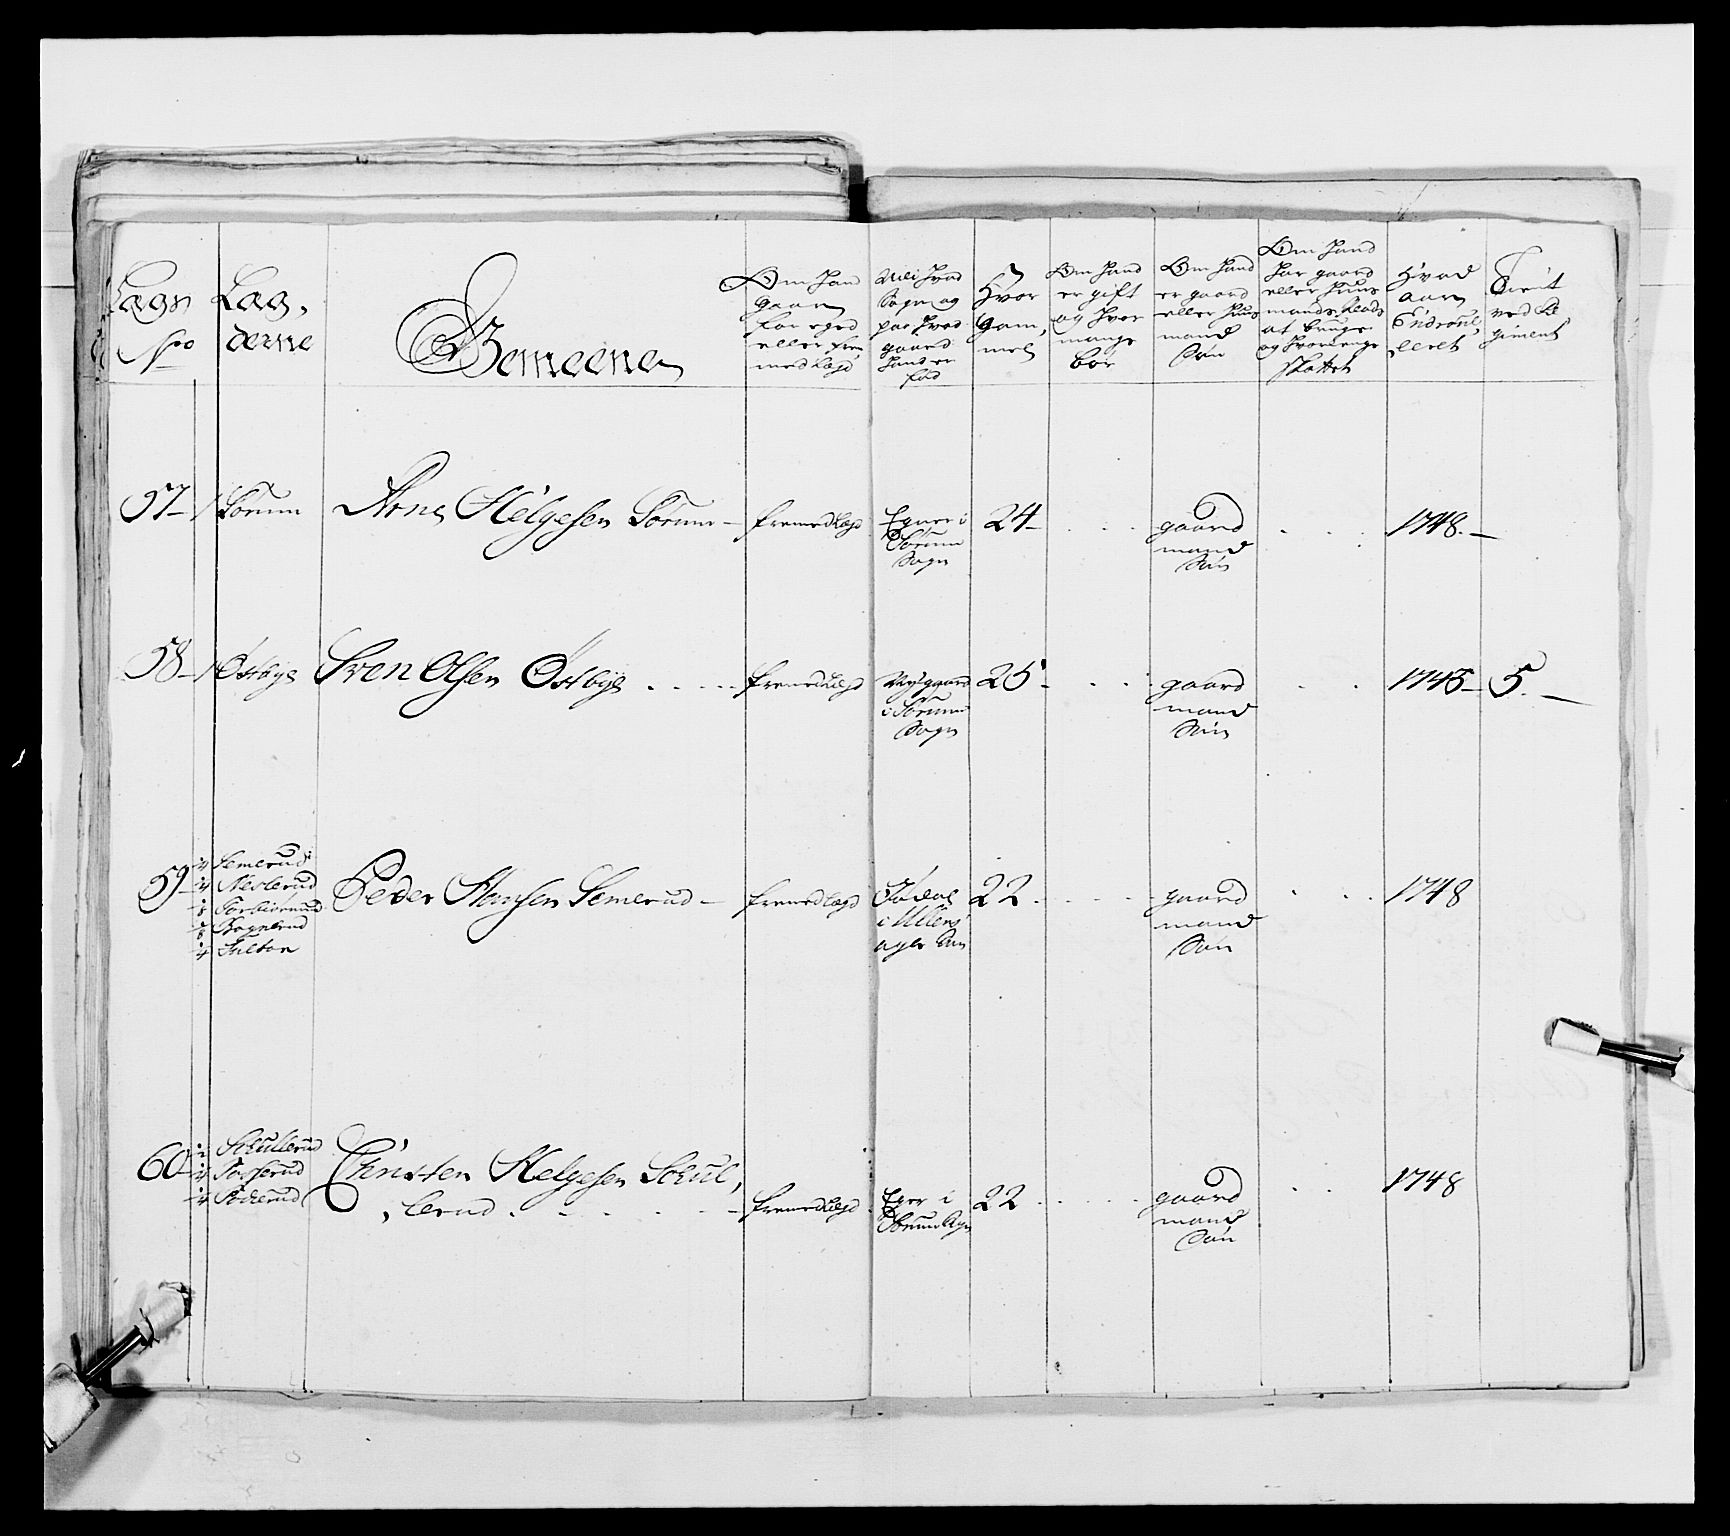 Lægs No
Læg, derne
Gemeene
Om hand gaar for eged eller fremed Lægd
Udi hvad Sogn og paa hvad gaard hand er fød
Hvor Gam, mel
Om hand er gift og hvor mange bør
Om hand er gaard eller huus mand Søn
Om hand har gaard eller huus mands Plads at bruge og hvor
Skatter
Hvad aar Endroul, leret
Tient ved Re giment
57 1 Sørum Arne Helgesen Sørum fremed Lægd Egner i Sørum Sogn 24 gaard mand Søn 1748
58 1 Østbye Sven Olsen Østbye fremed Lægd Nysgaard i Sørum Sogn 25 gaard mand Søn 1745 5
59 Semerud Neslerud Torbiørnrud Fulton
Peder Hansen Semerud fremed Lægd i Ullens ager 22 gaard mand Søn 1748
60 Schullerud Tosserud
Christen Helgesen Schul, lerud fremed Lægd Eger i Sørum Sogn 22 gaard mand Søn 1748